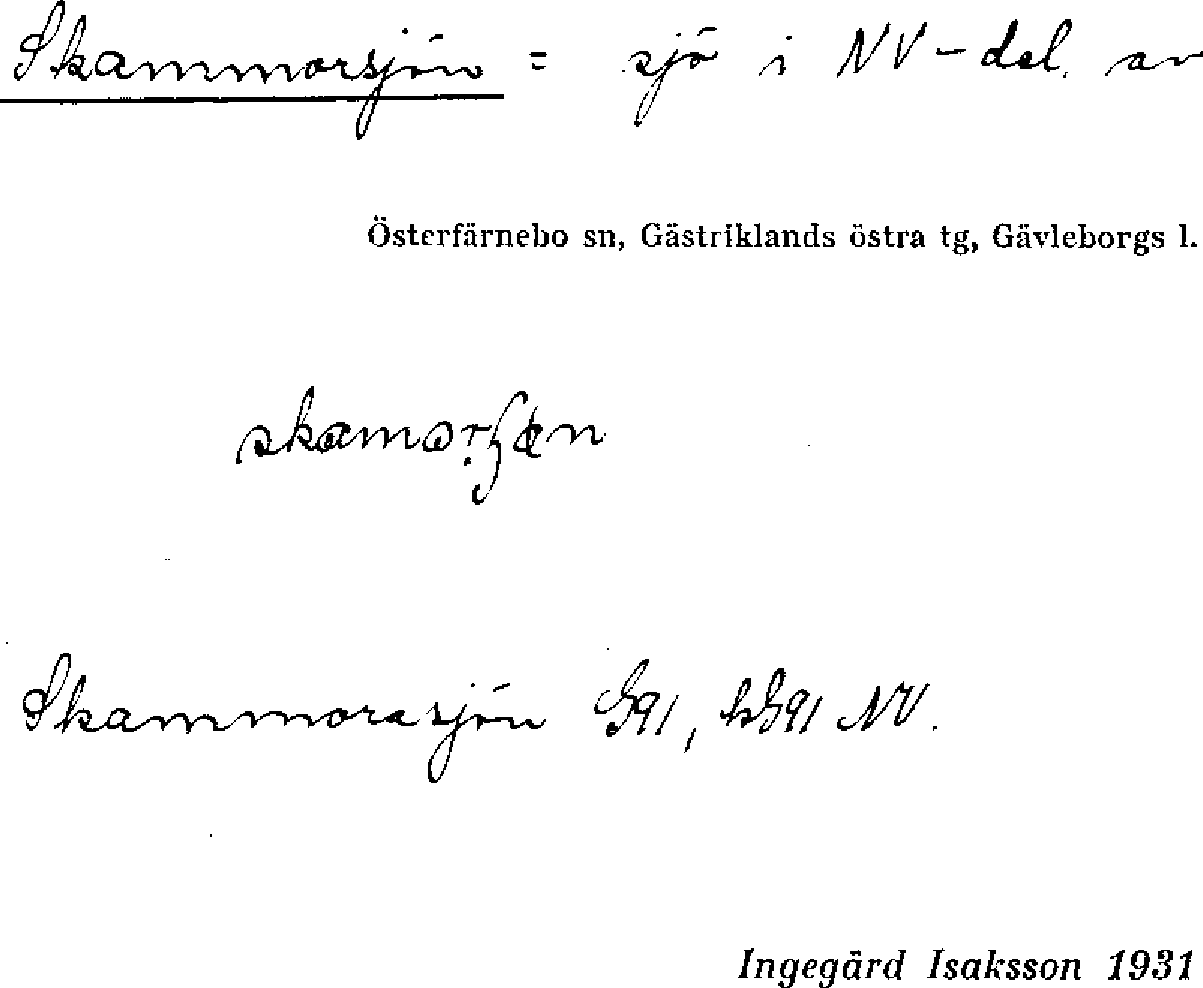 Skammorsjön = sjö i NV-del. av
Österfärnebo sn, Gästriklands östra tg, Gävleborgs l.
Skammorasjön G91, kG91 NV.
Ingegärd Isaksson 1931